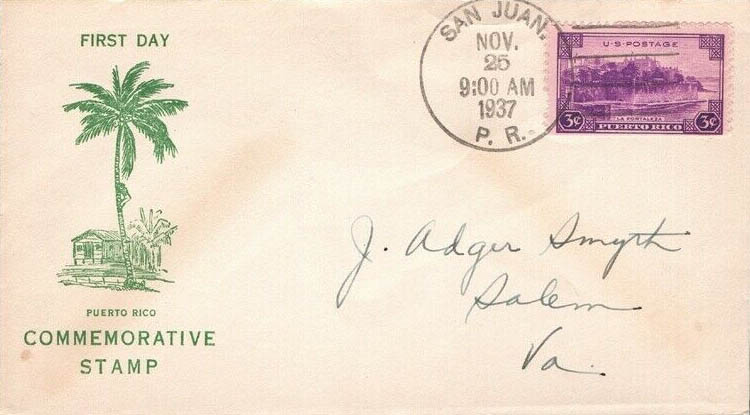 FIRST DAY
PUERTO RICO
COMMEMORATIVE
STAMP
SAN JUAN.
NOV.
25
9:00 AM
1937
P. R.
U·S·POSTAGE
LA FORTALEZA
3¢ PUERTO RICO 3¢
J. Adger Smyth
Salem
Va.